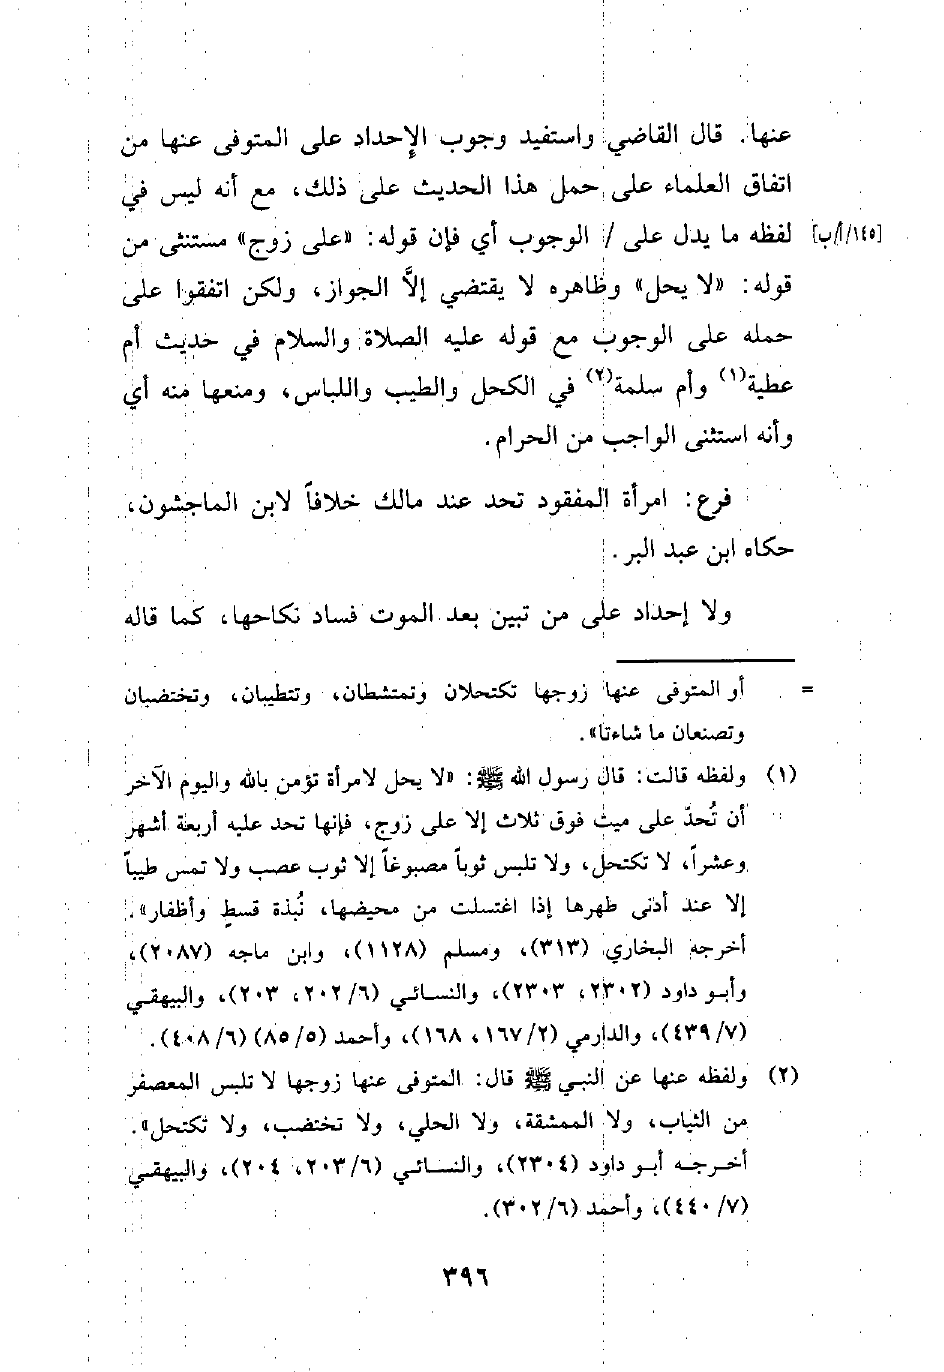 عنها. قال القاضي واستفيد وجوب الإحداد على المتوفى عنها من
اتفاق العلماء على حمل هذا الحديث على ذلك، مع أنه ليس في
[١٤٥/أ/ب] لفظه ما يدل على / الوجوب أي فإن قوله: «على زوج» مستثنى من
قوله: «لا يحل» وظاهره لا يقتضي إلَّا الجواز، ولكن اتفقوا على
حمله على الوجوب مع قوله عليه الصلاة والسلام في حديث أم
عطية(١) وأم سلمة(٢) في الكحل والطيب واللباس، ومنعها منه أي
وأنه استثنى الواجب من الحرام.
فرع: امرأة المفقود تحد عند مالك خلافاً لابن الماجشون،
حكاه ابن عبد البر.
ولا إحداد على من تبين بعد الموت فساد نكاحها، كما قاله
= أو المتوفى عنها زوجها تكتحلان وتمتشطان، وتتطيبان، وتختضبان
وتصنعان ما شاءتا».
(١) ولفظه قالت: قال رسول الله ﷺ: «لا يحل لامرأة تؤمن بالله واليوم الآخر
أن تُحدّ على ميت فوق ثلاث إلا على زوج، فإنها تحد عليه أربعة أشهر
وعشراً، لا تكتحل، ولا تلبس ثوباً مصبوغاً إلا ثوب عصب ولا تمس طيباً
إلا عند أدنى طهرها إذا اغتسلت من محيضها، نُبذة قسطٍ وأظفار».
أخرجه البخاري (٣١٣)، ومسلم (١١٢٨)، وابن ماجه (٢٠٨٧)،
وأبو داود (٢٣٠٢، ٢٣٠٣)، والنسائي (٢٠٢/٦، ٢٠٣)، والبيهقي
(٤٣٩/٧)، والدارمي (١٦٧/٢، ١٦٨)، وأحمد (٨٥/٥) (٤٠٨/٦).
(٢) ولفظه عنها عن النبي ﷺ قال: المتوفى عنها زوجها لا تلبس المعصفر
من الثياب، ولا الممشقة، ولا الحلي، ولا تختضب، ولا تكتحل».
أخرجه أبو داود (٢٣٠٤)، والنسائي (٢٠٣/٦، ٢٠٤)، والبيهقي
(٤٤٠/٧)، وأحمد (٣٠٢/٦).
٣٩٦